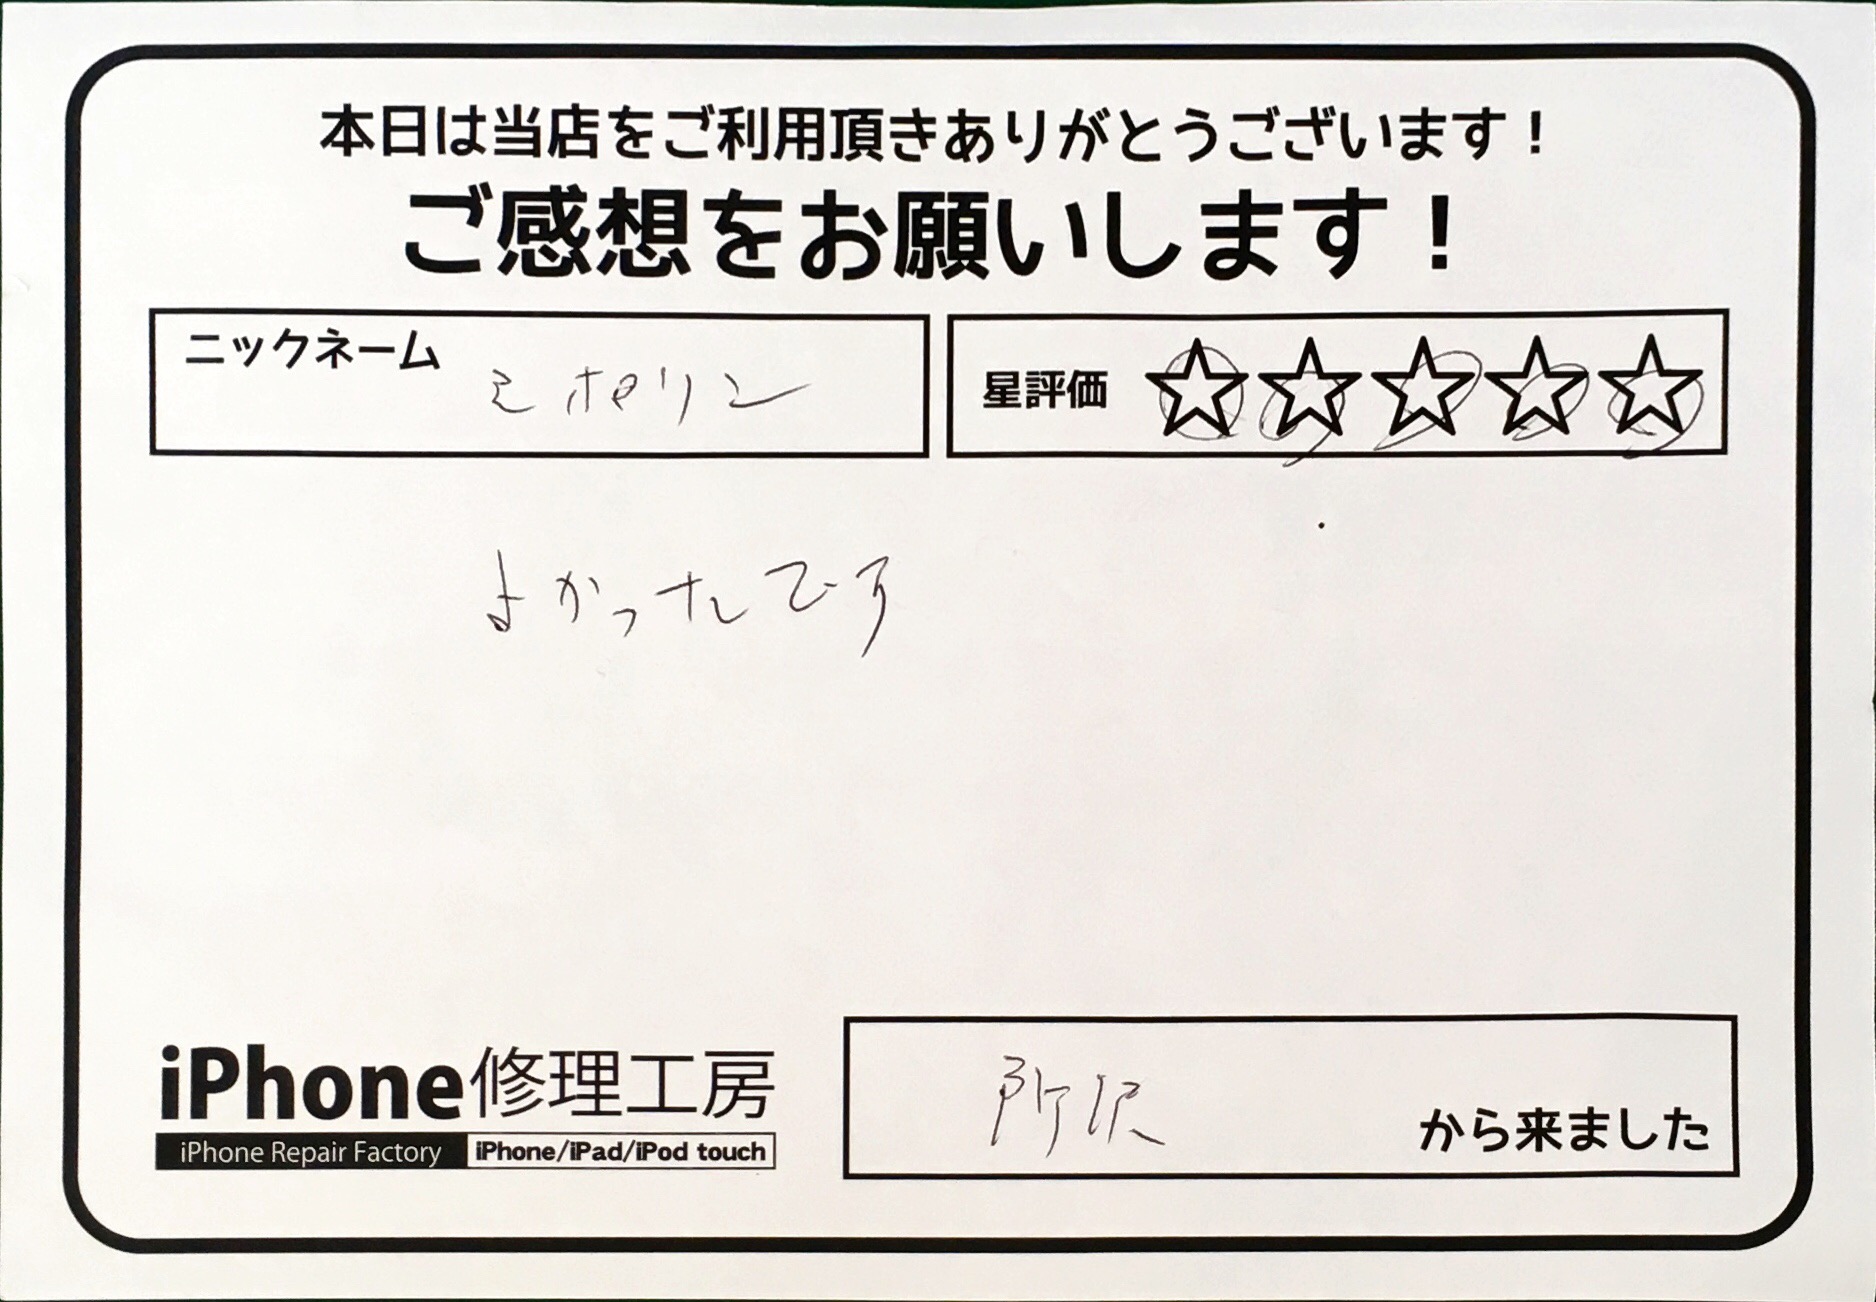 本日は当店をご利用頂きありがとうございます！
ご感想をお願いします！
ニックネーム ミポリン
星評価 ☆☆☆☆☆
よかったです
iPhone修理工房
iPhone Repair Factory iPhone/iPad/iPod touch
所沢 から来ました